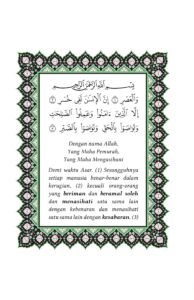 بِسْمِ اللَّهِ الرَّحْمَٰنِ الرَّحِيمِ
وَالْعَصْرِ ۝١ إِنَّ الْإِنسَانَ لَفِي خُسْرٍ ۝٢
إِلَّا الَّذِينَ ءَامَنُوا وَعَمِلُوا الصَّالِحَاتِ
وَتَوَاصَوْا بِالْحَقِّ وَتَوَاصَوْا بِالصَّبْرِ ۝٣
Dengan nama Allah,
Yang Maha Pemurah,
Yang Maha Mengasihani
Demi waktu Asar. (1) Sesungguhnya
setiap manusia benar-benar dalam
kerugian, (2) kecuali orang-orang
yang beriman dan beramal soleh
dan menasihati satu sama lain
dengan kebenaran dan menasihati
satu sama lain dengan kesabaran. (3)